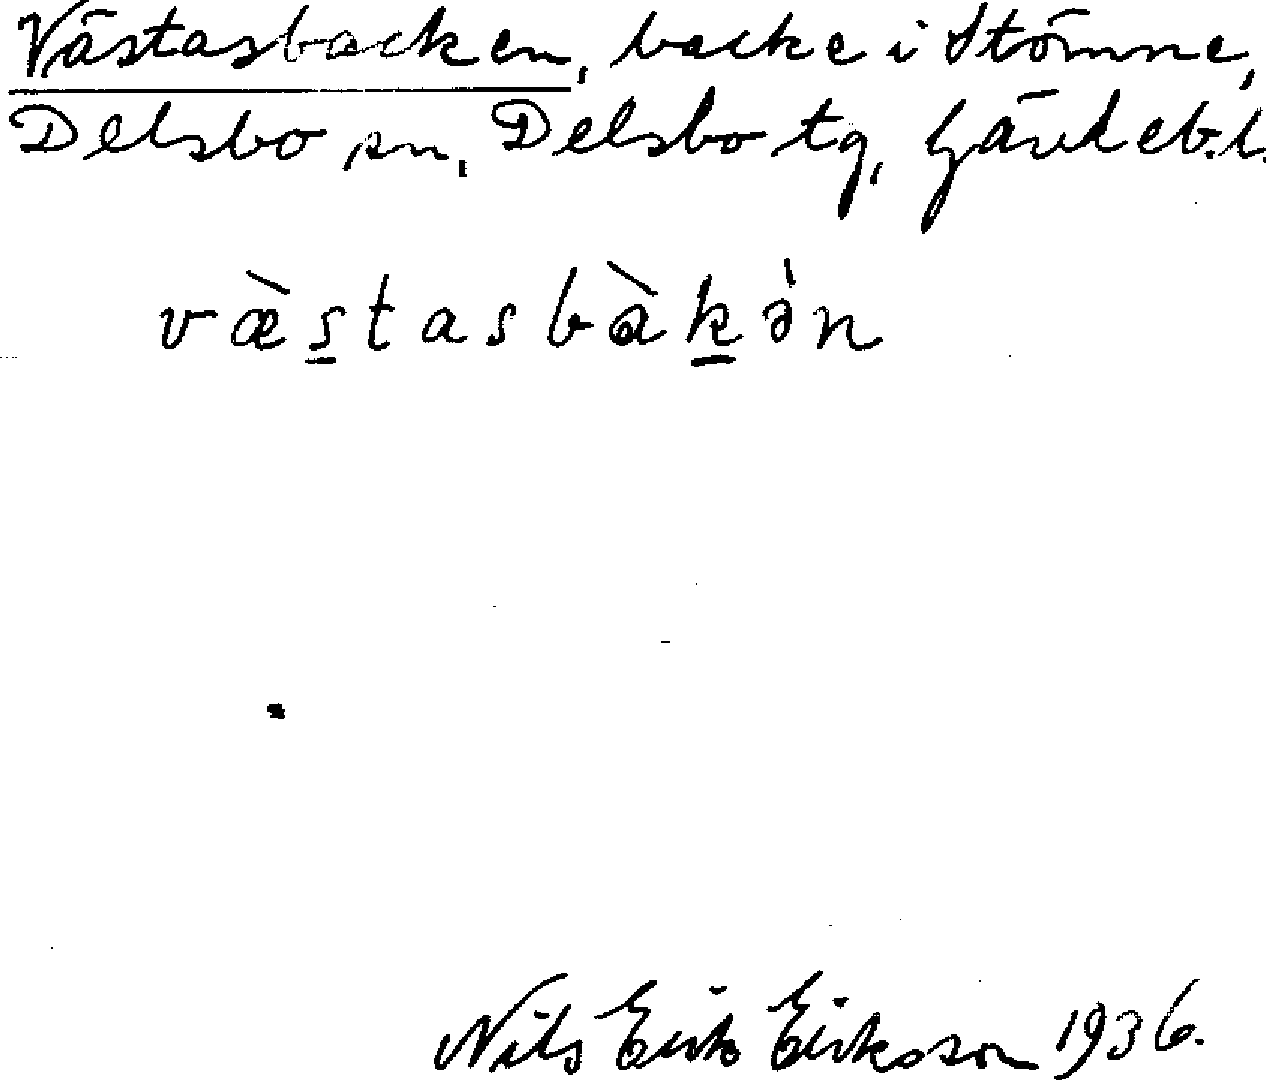 Västasbacken, backe i Stömne,
Delsbo sn, Delsbo tg, Gävleb. l.
væ̀s̲tasbàk̲ə̀n
Nils Erik Eriksson 1936.